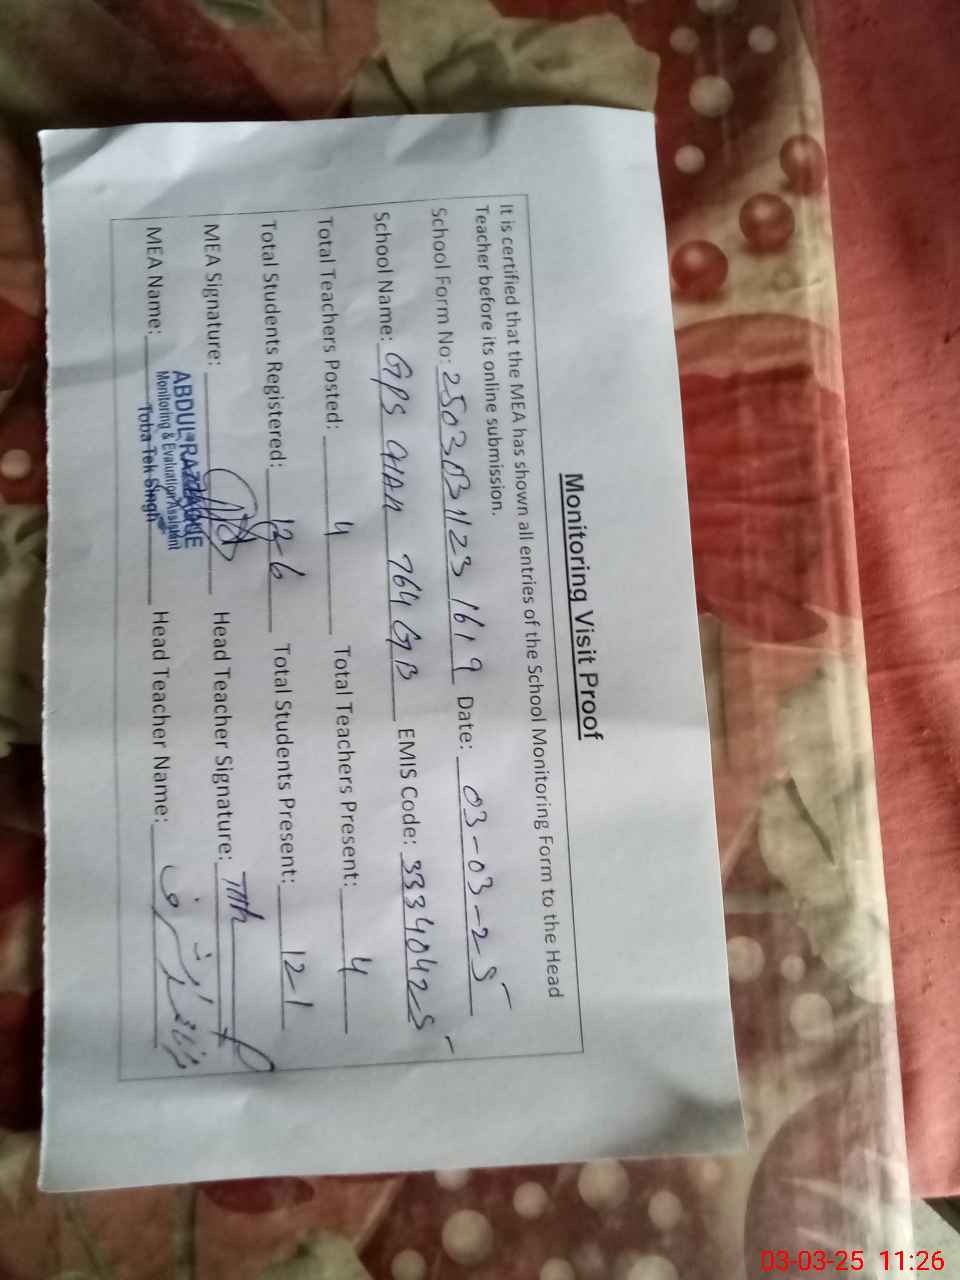 Monitoring Visit Proof
It is certified that the MEA has shown all entries of the School Monitoring Form to the Head
Teacher before its online submission.
School Form No: 25030311231619 Date: 03-03-25
School Name: GPS CHAK 764 GB EMIS Code: 33340425
Total Teachers Posted: 4 Total Teachers Present: 4
Total Students Registered: 126 Total Students Present: 121
MEA Signature: Head Teacher Signature:
MEA Name: Head Teacher Name:
ABDUL RAZZAQUE
Monitoring & Evaluation Assistant
Toba Tek Singh
03-03-25 11:26